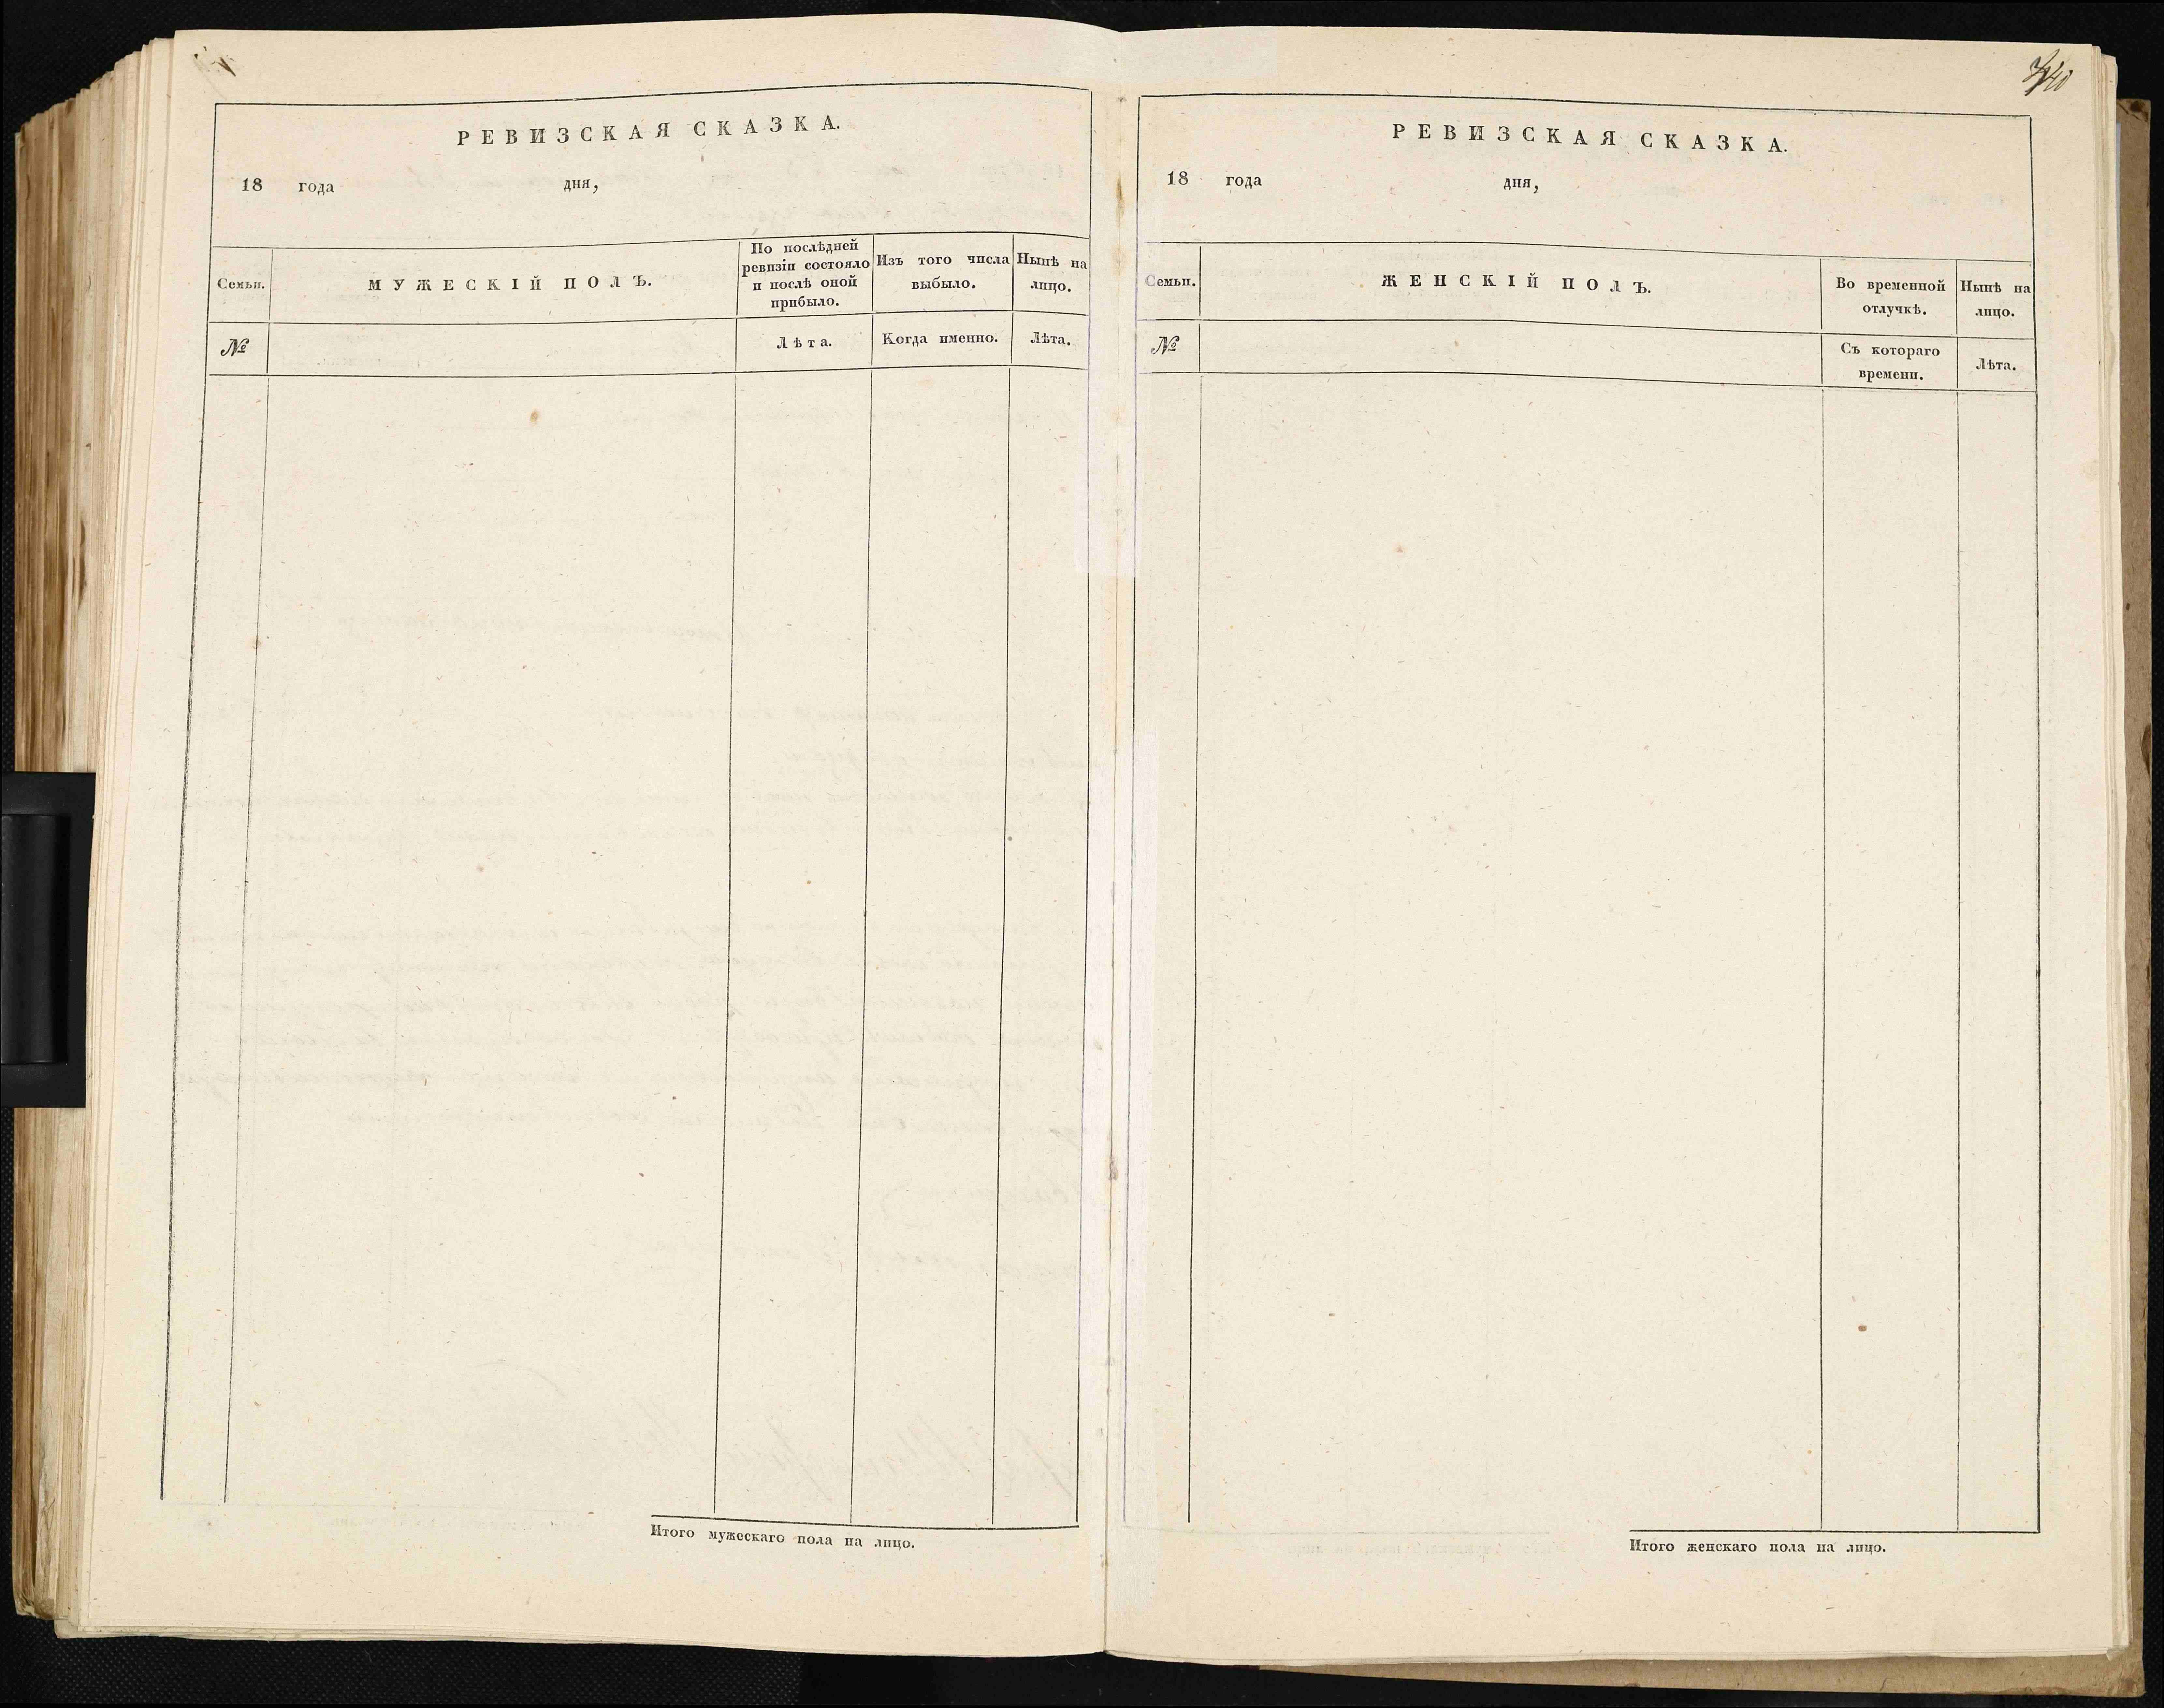 РЕВИЗСКАЯ СКАЗКА.
18 года дня,
Семьи.
МУЖЕСКІЙ ПОЛЪ.
По послѣдней
ревизіи состояло
и послѣ оной
прибыло.
Изъ того числа
выбыло.
Нынѣ на
лицо.
№
Лѣта.
Когда именно.
Лѣта.
Итого мужескаго пола на лицо.
РЕВИЗСКАЯ СКАЗКА.
18 года дня,
Семьи.
ЖЕНСКІЙ ПОЛЪ.
Во временной
отлучкѣ.
Нынѣ на
лицо.
№
Съ котораго
времени.
Лѣта.
Итого женскаго пола на лицо.